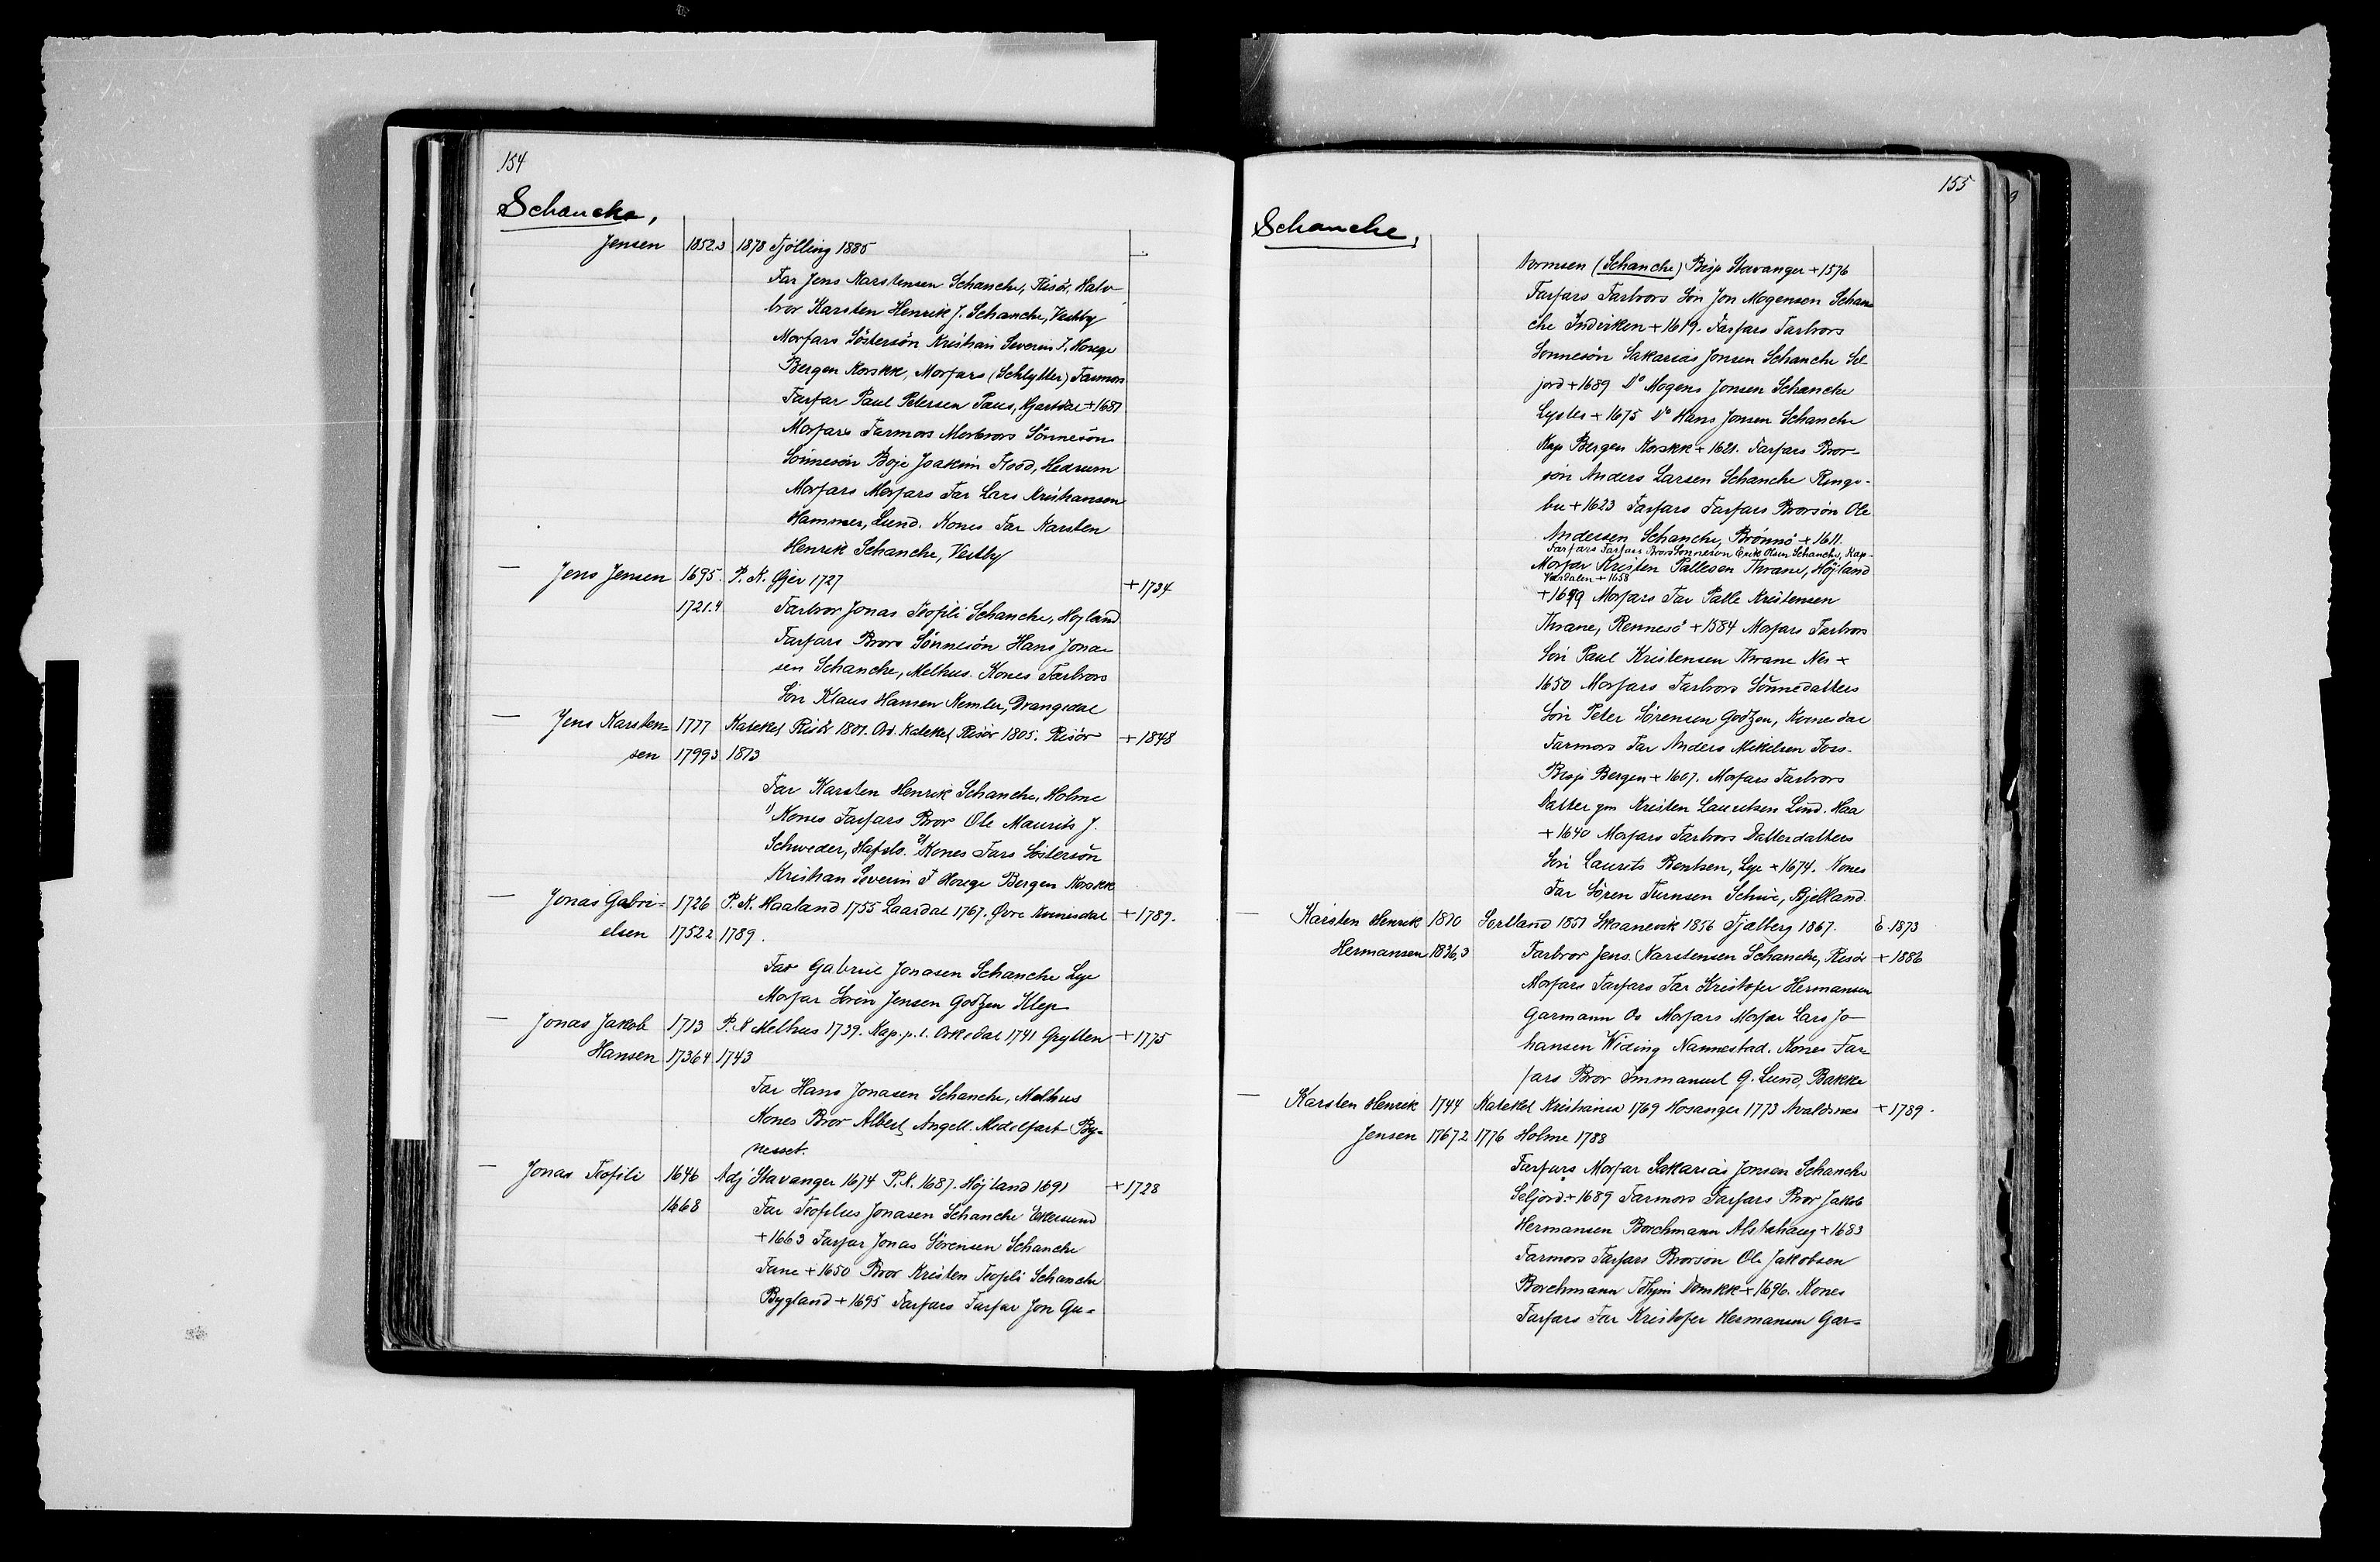 154
Schancke,
Jensen 1852.3 1878 Tjölling 1885 -
Far Jens Karstensen Schanche, Risör, Halv-
bror Karsten Henrik J. Schanche, Vestby
Morfars Söstersön Kristian Severin T. Horege
Bergen Korskk, Morfars (Schlytter) Farmors
Farfar Paul Petersen Paus, Kjartdal + 1681
Morfars Farmors Morbrors Sönnesöns
Sönnesön Boje Joakim Flood, Hedrum
Morfars Morfars Far Lars Kristiansen
Hammer, Lund. Kones Far Karsten
Henrik Schanche, Vestby
— Jens Jensen 1695. P. K. Gjer 1727 + 1734
1721.4 Farbror Jonas Teofili Schanche, Høyland
Farfars Brors Sönnesön Hans Jona-
sen Schanche, Melhus. Kones Farbrors
Sön Klaus Hansen Nemler, Drangedal
— Jens Karsten= 1777 Kateket Risör 1801. Ord. Kateket Risör 1805. Risör + 1848
sen 1799 3 1813
Far Karsten Henrik Schanche, Holme
1) Kones Farfars Bror Ole Maurits J.
Schweder, Hafslo. 2) Kones Fars Söstersön
Kristian Severin T Horege Bergen Korskk
— Jonas Gabri= 1726 P. K. Haaland 1755 Laardal 1767. Øvre Kvinesdal + 1789.
elsen 1752 2 1789.
Far Gabriel Jonasen Schanche Lye
Morfar Sören Jensen Godtzen Klep
— Jonas Jakob 1713 P. K Melhus 1739. Kap. p. l. Orkedal 1741 Grytten + 1775
Hansen 1736 4 1743
Far Hans Jonasen Schanche, Melhus
Kones Bror Albert Angell. Medelfart By=
nesset.
— Jonas Teofili 1646 Adj Stavanger 1674 P. K. 1687. Höjland 1691 + 1728
1668 Far Teofilus Jonasen Schanche Ekersund
+ 1663 Farfar Jonas Sörensen Schanche
Fane + 1650 Bror Kristen Teofili Schanche
Bygland + 1695 Farfars Farfar Jon Gu=
155
Schanche,
tormsen (Schanche) Bisp Stavanger + 1576
Farfars Farbrors Sön Jon Mogensen Schan
che Indviken + 1619. Farfars Farbrors
Sönnesön Sakarias Jonsen Schanche Sel
jord + 1689 Do Mogens Jonsen Schanche
Lyster + 1675 Do Hans Jonsen Schanche
Kap Bergen Korskk + 1621. Farfars Bror-
sön Anders Larsen Schanche Ringe-
bu + 1623 Farfars Farfars Brorsön Ole
Andersen Schanche, Brönnö + 1611.
Farfars Farfars Brors Sonneson Erik Olsen Schanche, Kap-
Morfar Kristen Pallesen Thrane, Höjland
Værdalen + 1658
+ 1699 Morfars Far Palle Kristensen
Thrane, Rennesö + 1584 Morfars Farbrors
Sön Paul Kristensen Thrane Nes +
1650 Morfars Farbrors Sönnedatters
Sön Peter Sörensen Godtzen, Kvinesdal
Farmors Far Anders Mikelsen Fors-
Bisp Bergen + 1607. Morfars Farbrors
Datter gm Kristen Lauritsen Lind. Haa
+ 1640 Morfars Farbrors Datterdatters
Sön Laurits Bentsen, Lye + 1674. Kones
Far Sören Turnsen Schive, Bjelland.
— Karsten Henrik 1810 Sortland 1851 Skaanevik 1856 Fjælberg 1867. E. 1873
Hermansen 1836,3 Farbror Jens. Karstensen Schanche, Risör + 1886
Morfars Farfars Far Kristofer Hermansen
Garmann Os Morfars Morfar Lars Jo-
hansen Widing Nannestad. Kones Far-
fars Bror Immanuel G. Lund, Bakke
— Karsten Henrik 1744 Kateket Kristiania 1769 Hosanger 1773 Avaldsnes + 1789.
Jensen 1767 2 1776 Holme 1788
Farfars Morfar Sakarias Jonsen Schanche
Seljord + 1689 Farmors Farfars Bror Jakob
Hermansen Borchmann Alstahaug + 1683
Farmors Farfars Brorsön Ole Jakobsen
Borchmann Tthjem Domkk + 1696. Kones
Farfars Far Kristofer Hermansen Gar=